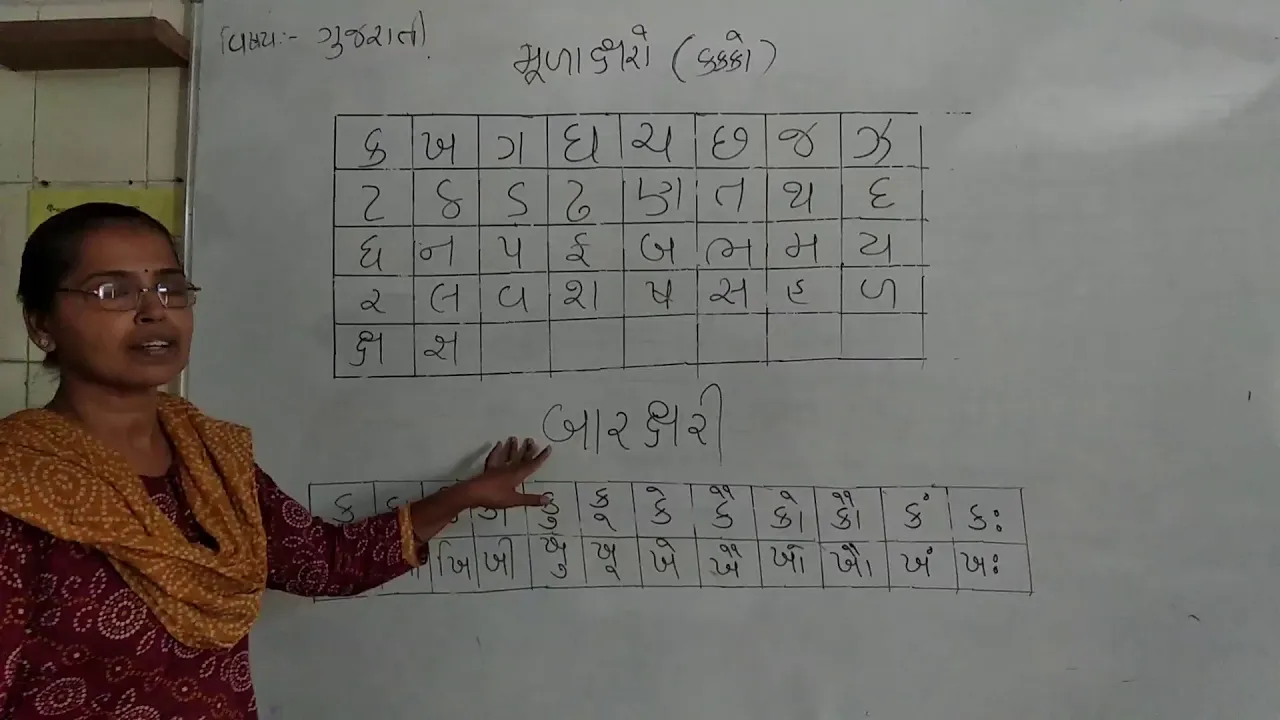 વિષય:- ગુજરાતી
મૂળાક્ષરો (કક્કો)
ક ખ ગ ઘ ચ છ જ ઝ
ટ ઠ ડ ઢ ણ ત થ દ
ધ ન પ ફ બ ભ મ ય
ર લ વ શ ષ સ હ ળ
ક્ષ
બારક્ષરી
ક કુ કૂ કે કૈ કો કૌ કં કઃ
ખિ ખી ખુ ખૂ ખે ખૈ ખો ખૌ ખં ખઃ